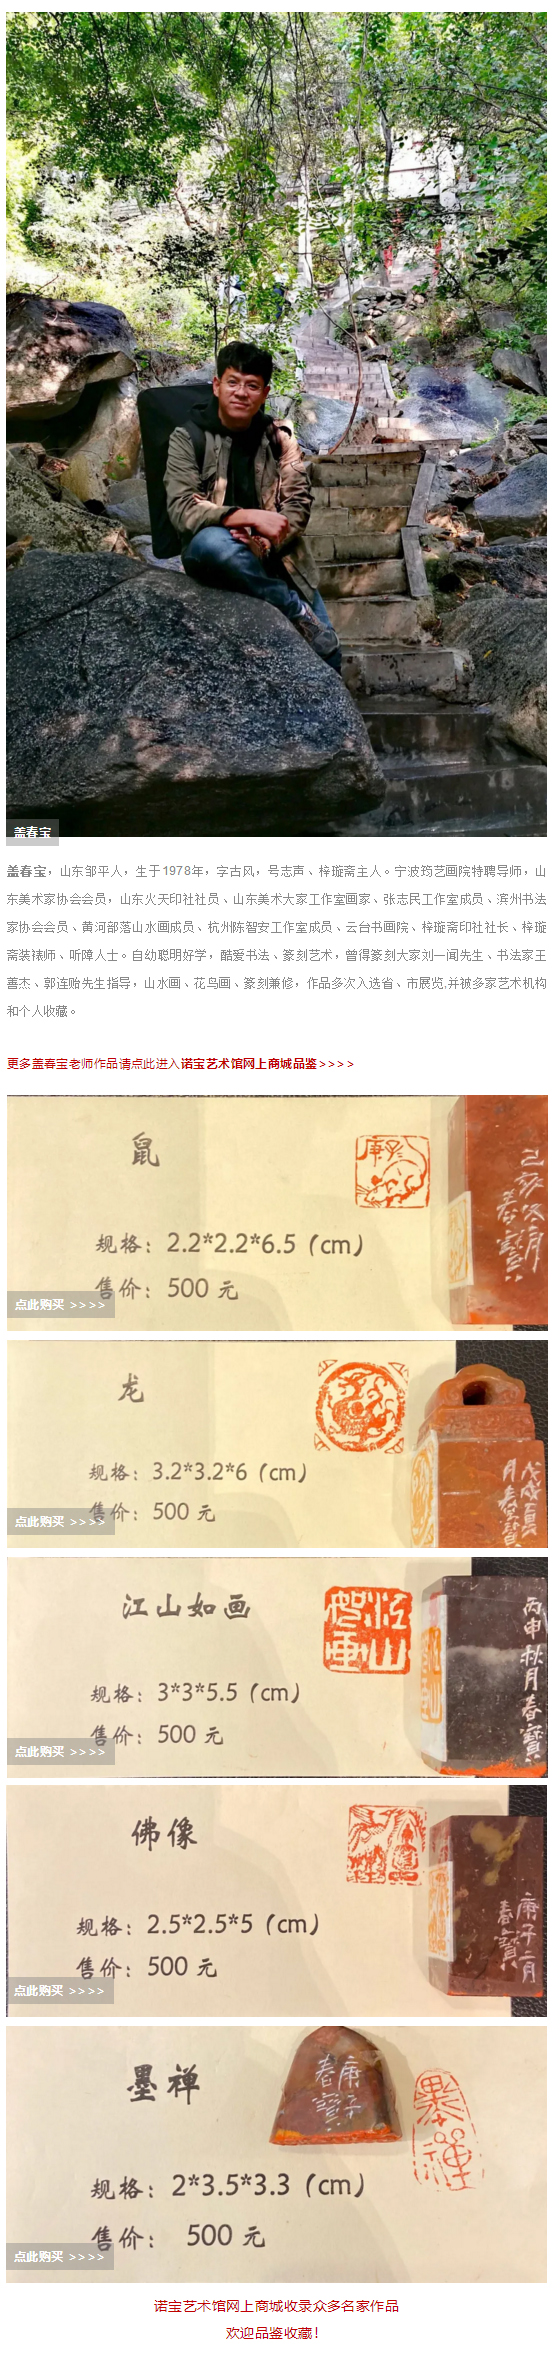 盖春宝
盖春宝，山东邹平人，生于1978年，字古风，号志声、梓璇斋主人。宁波筠艺画院特聘导师，山
东美术家协会会员，山东火天印社社员、山东美术大家工作室画家、张志民工作室成员、滨州书法
家协会会员、黄河部落山水画成员、杭州陈智安工作室成员、云台书画院、梓璇斋印社社长、梓璇
斋装裱师、听障人士。自幼聪明好学，酷爱书法、篆刻艺术，曾得篆刻大家刘一闻先生、书法家王
善杰、郭连贻先生指导，山水画、花鸟画、篆刻兼修，作品多次入选省、市展览,并被多家艺术机构
和个人收藏。
更多盖春宝老师作品请点此进入诺宝艺术馆网上商城品鉴>>>>
鼠
庚子
己亥冬月
春寶
规格：2.2*2.2*6.5（cm）
售价：500 元
点此购买 >>>>
龙
戊戌夏
月春寶
规格：3.2*3.2*6（cm）
售价：500 元
点此购买 >>>>
江山如画
江山如画
丙申秋月春寶
规格：3*3*5.5（cm）
售价：500 元
点此购买 >>>>
佛像
庚子二月
春寶
规格：2.5*2.5*5（cm）
售价：500 元
点此购买 >>>>
墨禅
庚子
春寶
墨禪
规格：2*3.5*3.3（cm）
售价： 500 元
点此购买 >>>>
诺宝艺术馆网上商城收录众多名家作品
欢迎品鉴收藏！